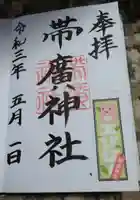 奉拝
帯廣神社
令和三年 五月 一日